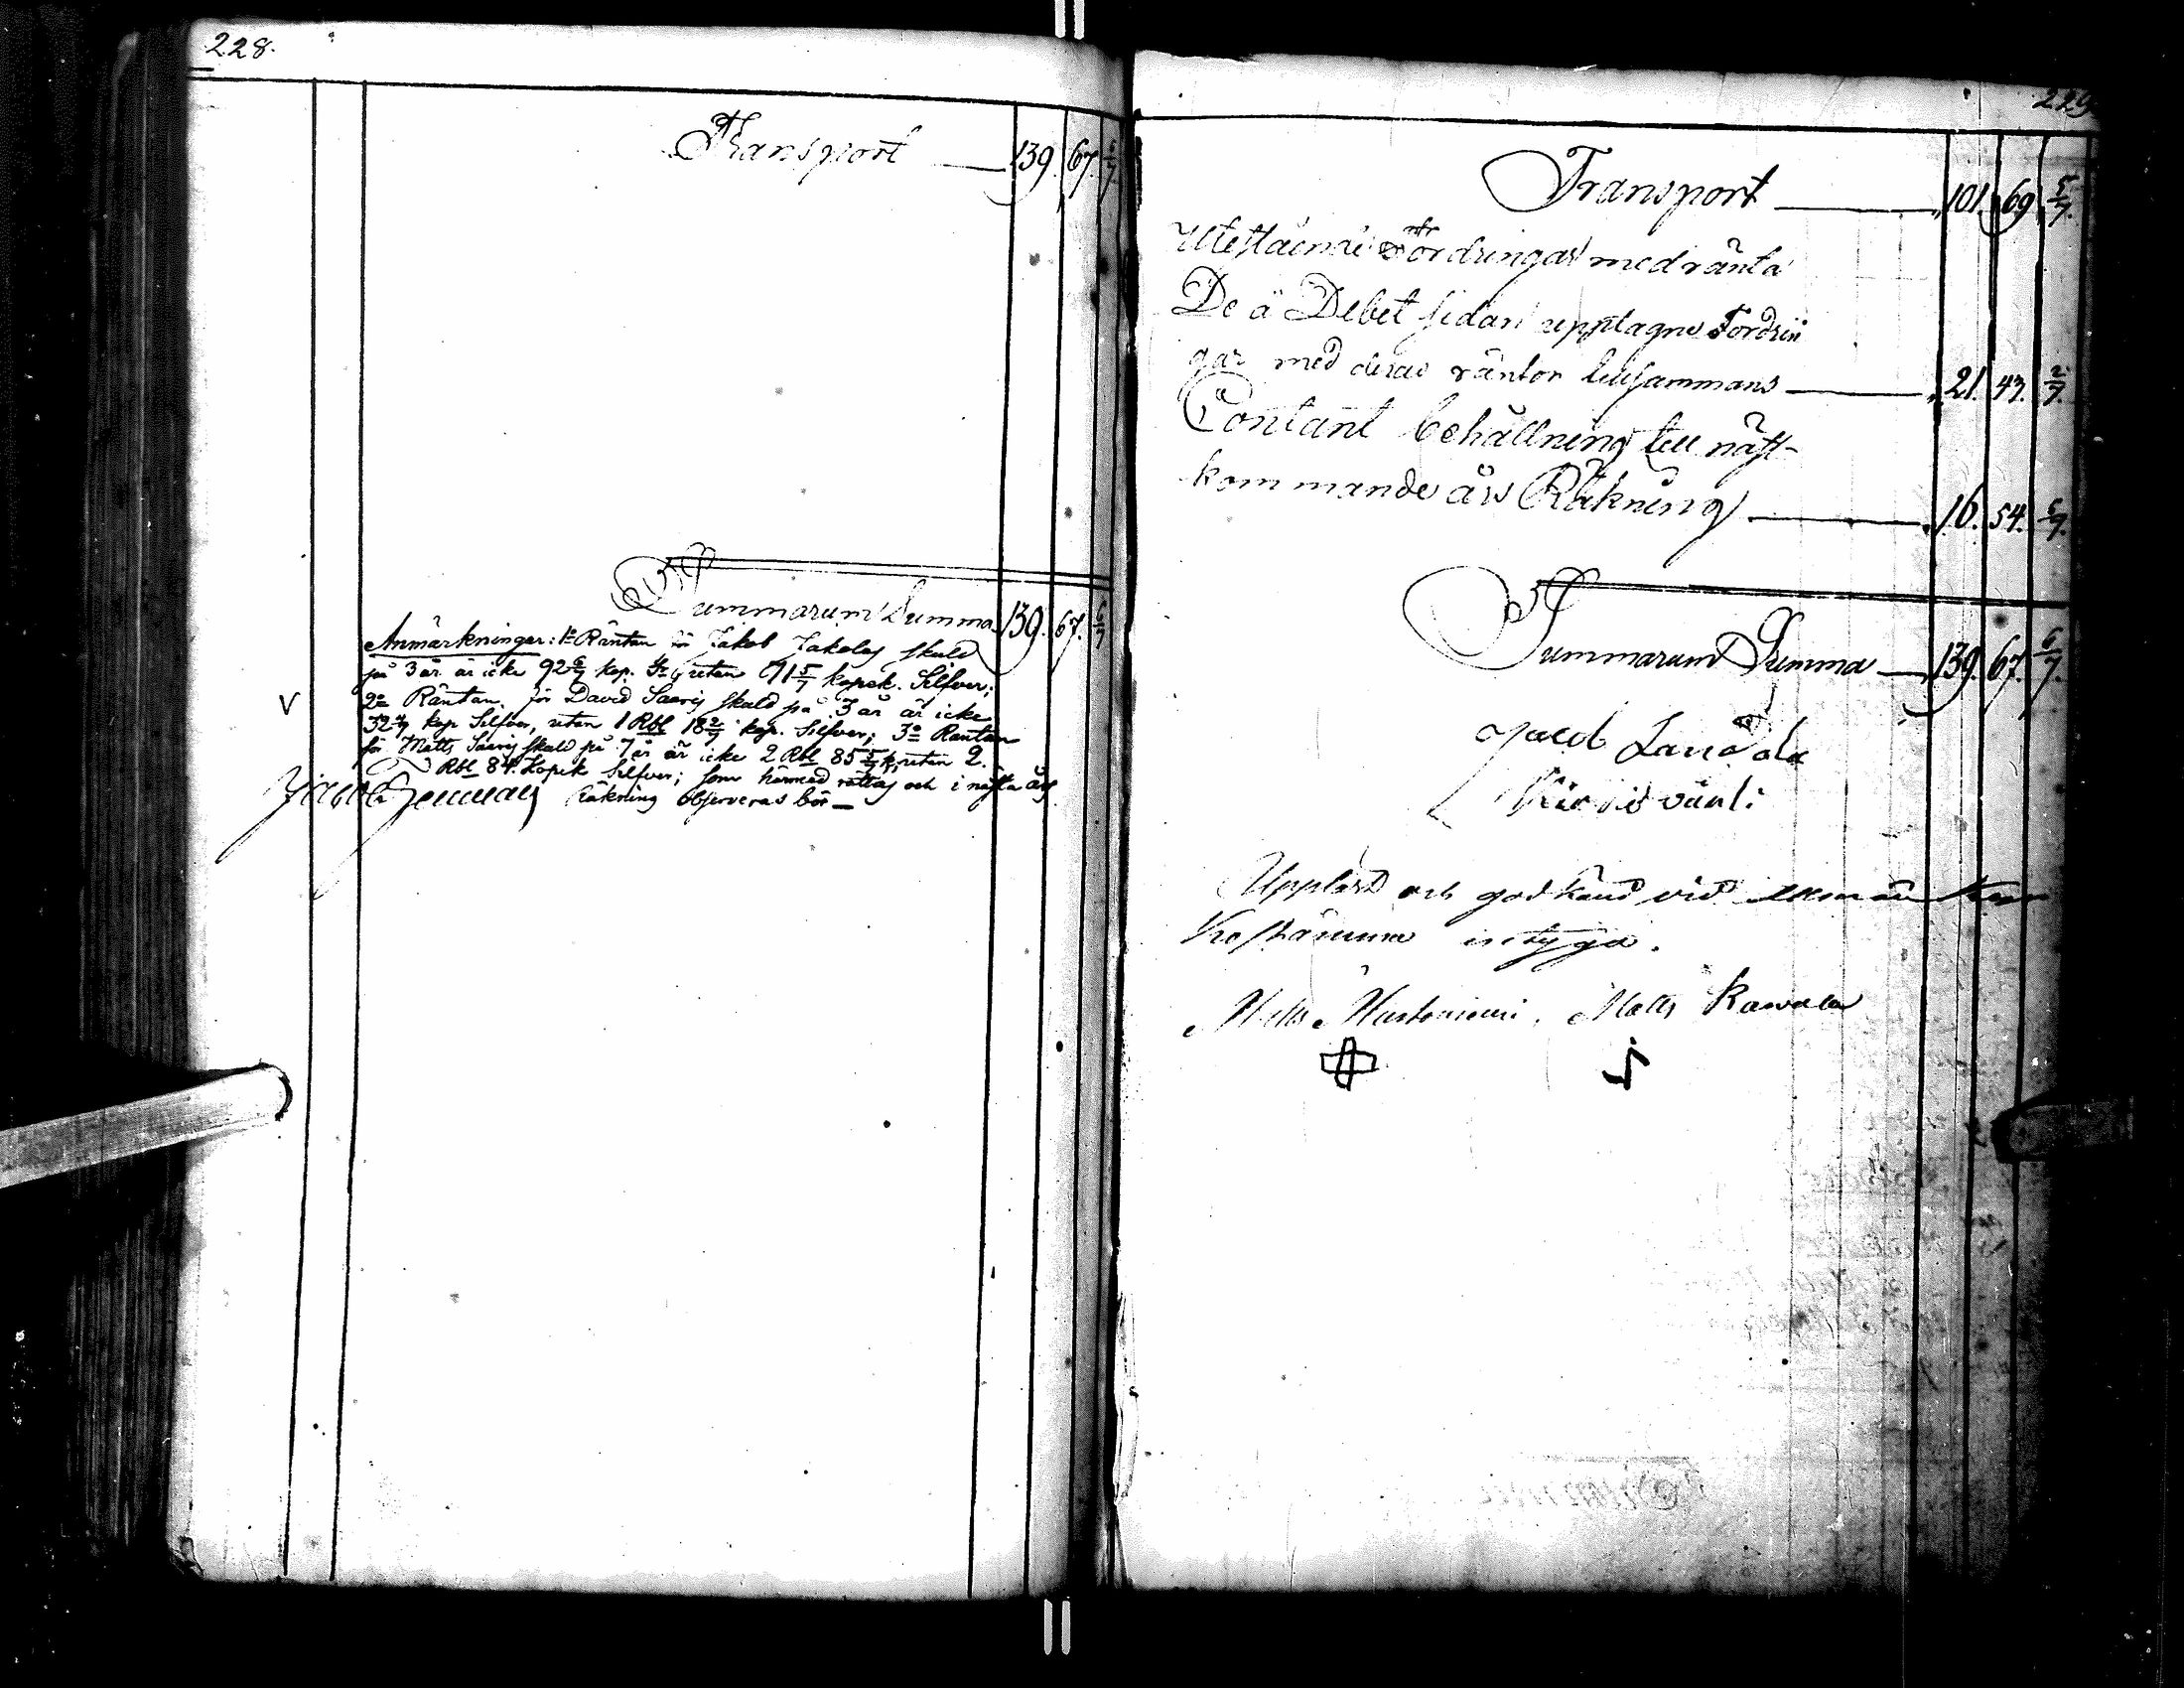 228.
Transport 139. 67. 6/7.
Summarum Summa 139. 67. 6/7
Anmärkningar: 1o Räntan för Jakob Jakolas skuld
på 3 år är icke 92 6/7 kop. Sr utan 91 5/7 kopek. Silfver;
V 2o Räntan för David Saaris skuld på 3 år är icke
32 4/7 kop Silfver, utan 1 Rbl 18 2/7 kop. Silfver; 3o Räntan
för Matts Saaris skuld på 7 år är icke 2 Rbl 85 5/7 k, utan 2.
Rbl 84. Kopek Silfver; som härmed rättas och i nästa års
Räkning observeras bör
229
Transport 101. 69 5/7.
Utestående Fordringar med ränta
De å Debet sidan upptagne Fordrin
gar med deras räntor tillsammans 21. 43. 2/7.
Contant behållning till näst-
kommande års Räkning 16. 54. 6/7.
Summarum Summa 139. 67. 6/7.
Jacob
Uppläst och godkänd vid
intyga.
Matts Matts Kawala